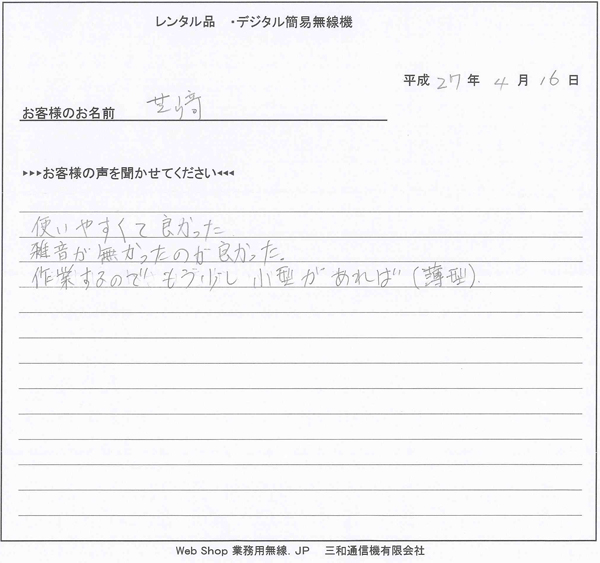 レンタル品 ・デジタル簡易無線機
平成 27 年 4 月 16 日
お客様のお名前 芝﨑
▶▶▶お客様の声を聞かせてください◀◀◀
使いやすくて良かった
雑音が無かったのが良かった。
作業するので もう少し小型があれば(薄型).
Web Shop 業務用無線.JP 三和通信機有限会社